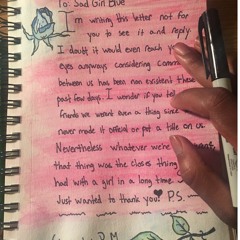 To: Sad Girl Blue
I'm writing this letter not for
you to see it and reply.
I doubt it would even reach your
eyes anyways considering comm
between us has been non existent these
past few days. I wonder if you tell
friends we weren't even a thing since
never made it official or put a title on us.
Nevertheless whatever we're
that thing was the closes thing
had with a girl in a long time.
Just wanted to thank you. P.S.